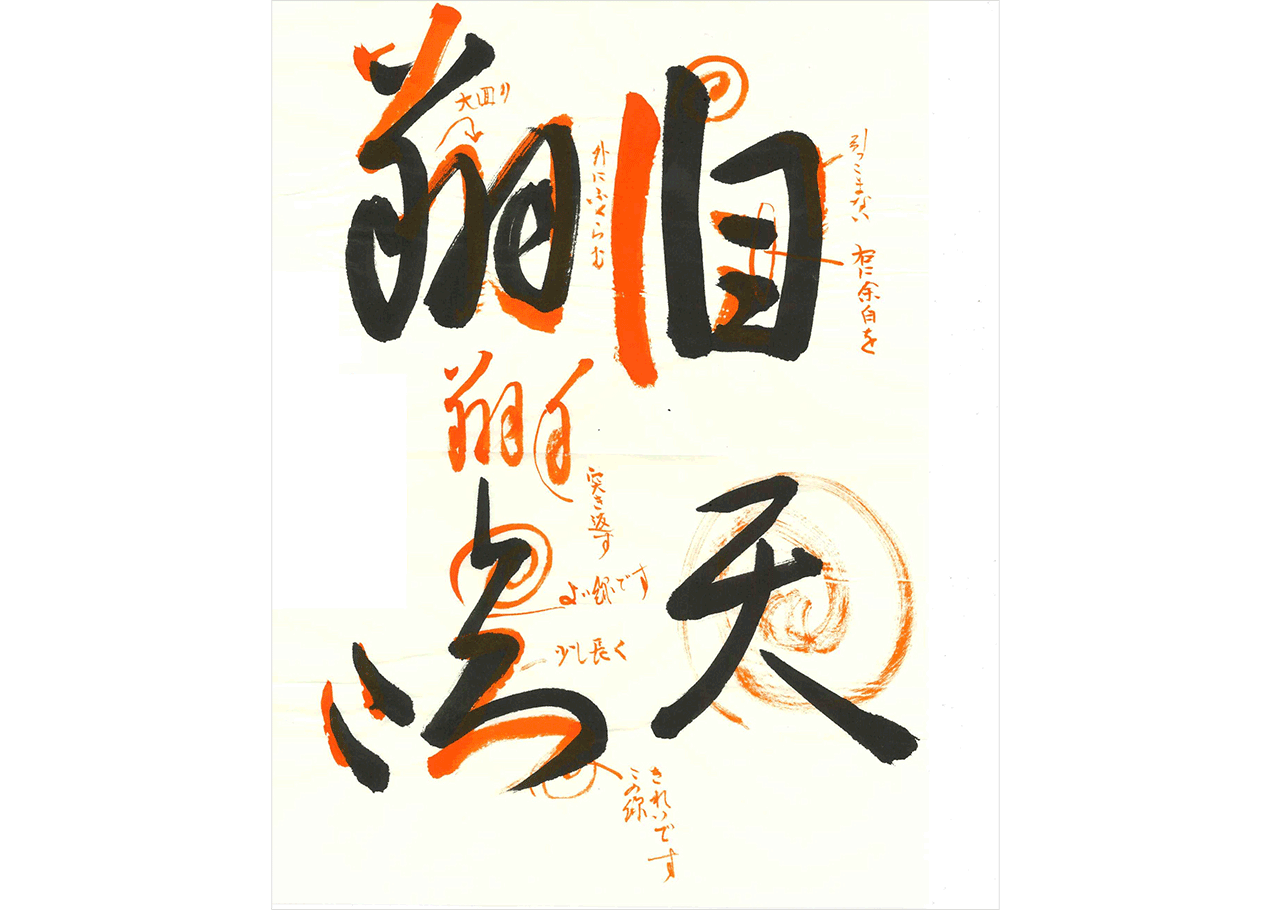 旧
引っこまない
右に余白を
天
外にふくらむ
大回り
翔
翔
突き返す
点
よい線です
少し長く
きれいです
この線